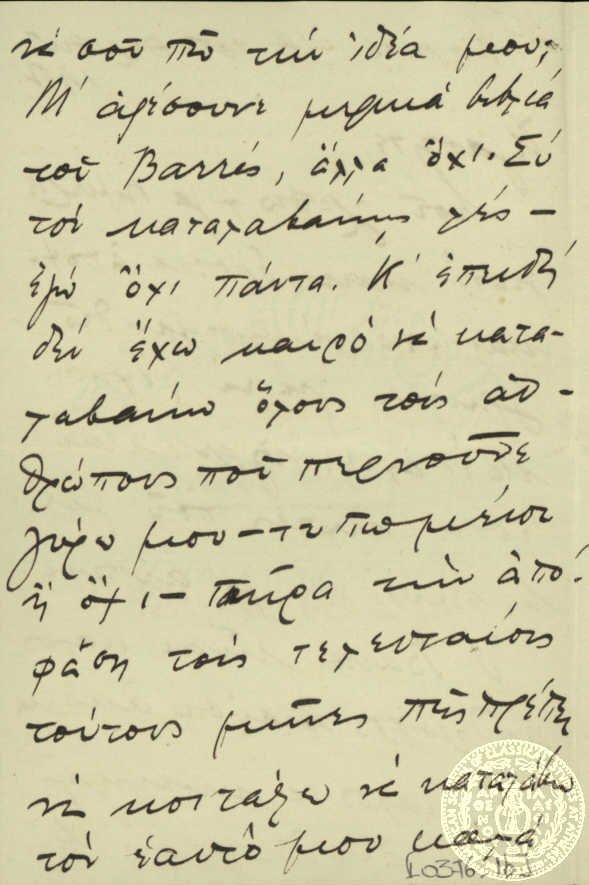 νὰ σοῦ πῶ τὴν ἰδέα μου;
Μ' ἀρέσουνε μερικά βιβλιά
τοῦ Barrès, ἄλλα ὄχι. Σύ
τὸν καταλαβαίνης λές –
ἐγὼ ὄχι πάντα. Κ' ἐπειδὴ
δὲν ἔχω καιρὸ νὰ κατα-
λαβαίνω ὅλους τοὺς ἀν-
θρώπους ποῦ περνοῦνε
γύρω μου –
ἢ ὄχι – πῆρα τὴν ἀπό-
φαση τοὺς τελευταίους
τούτους μῆνες πῶς πρέπει
νὰ κοιτάξω νὰ καταλάβω
τὸν ἑαυτό μου καλά